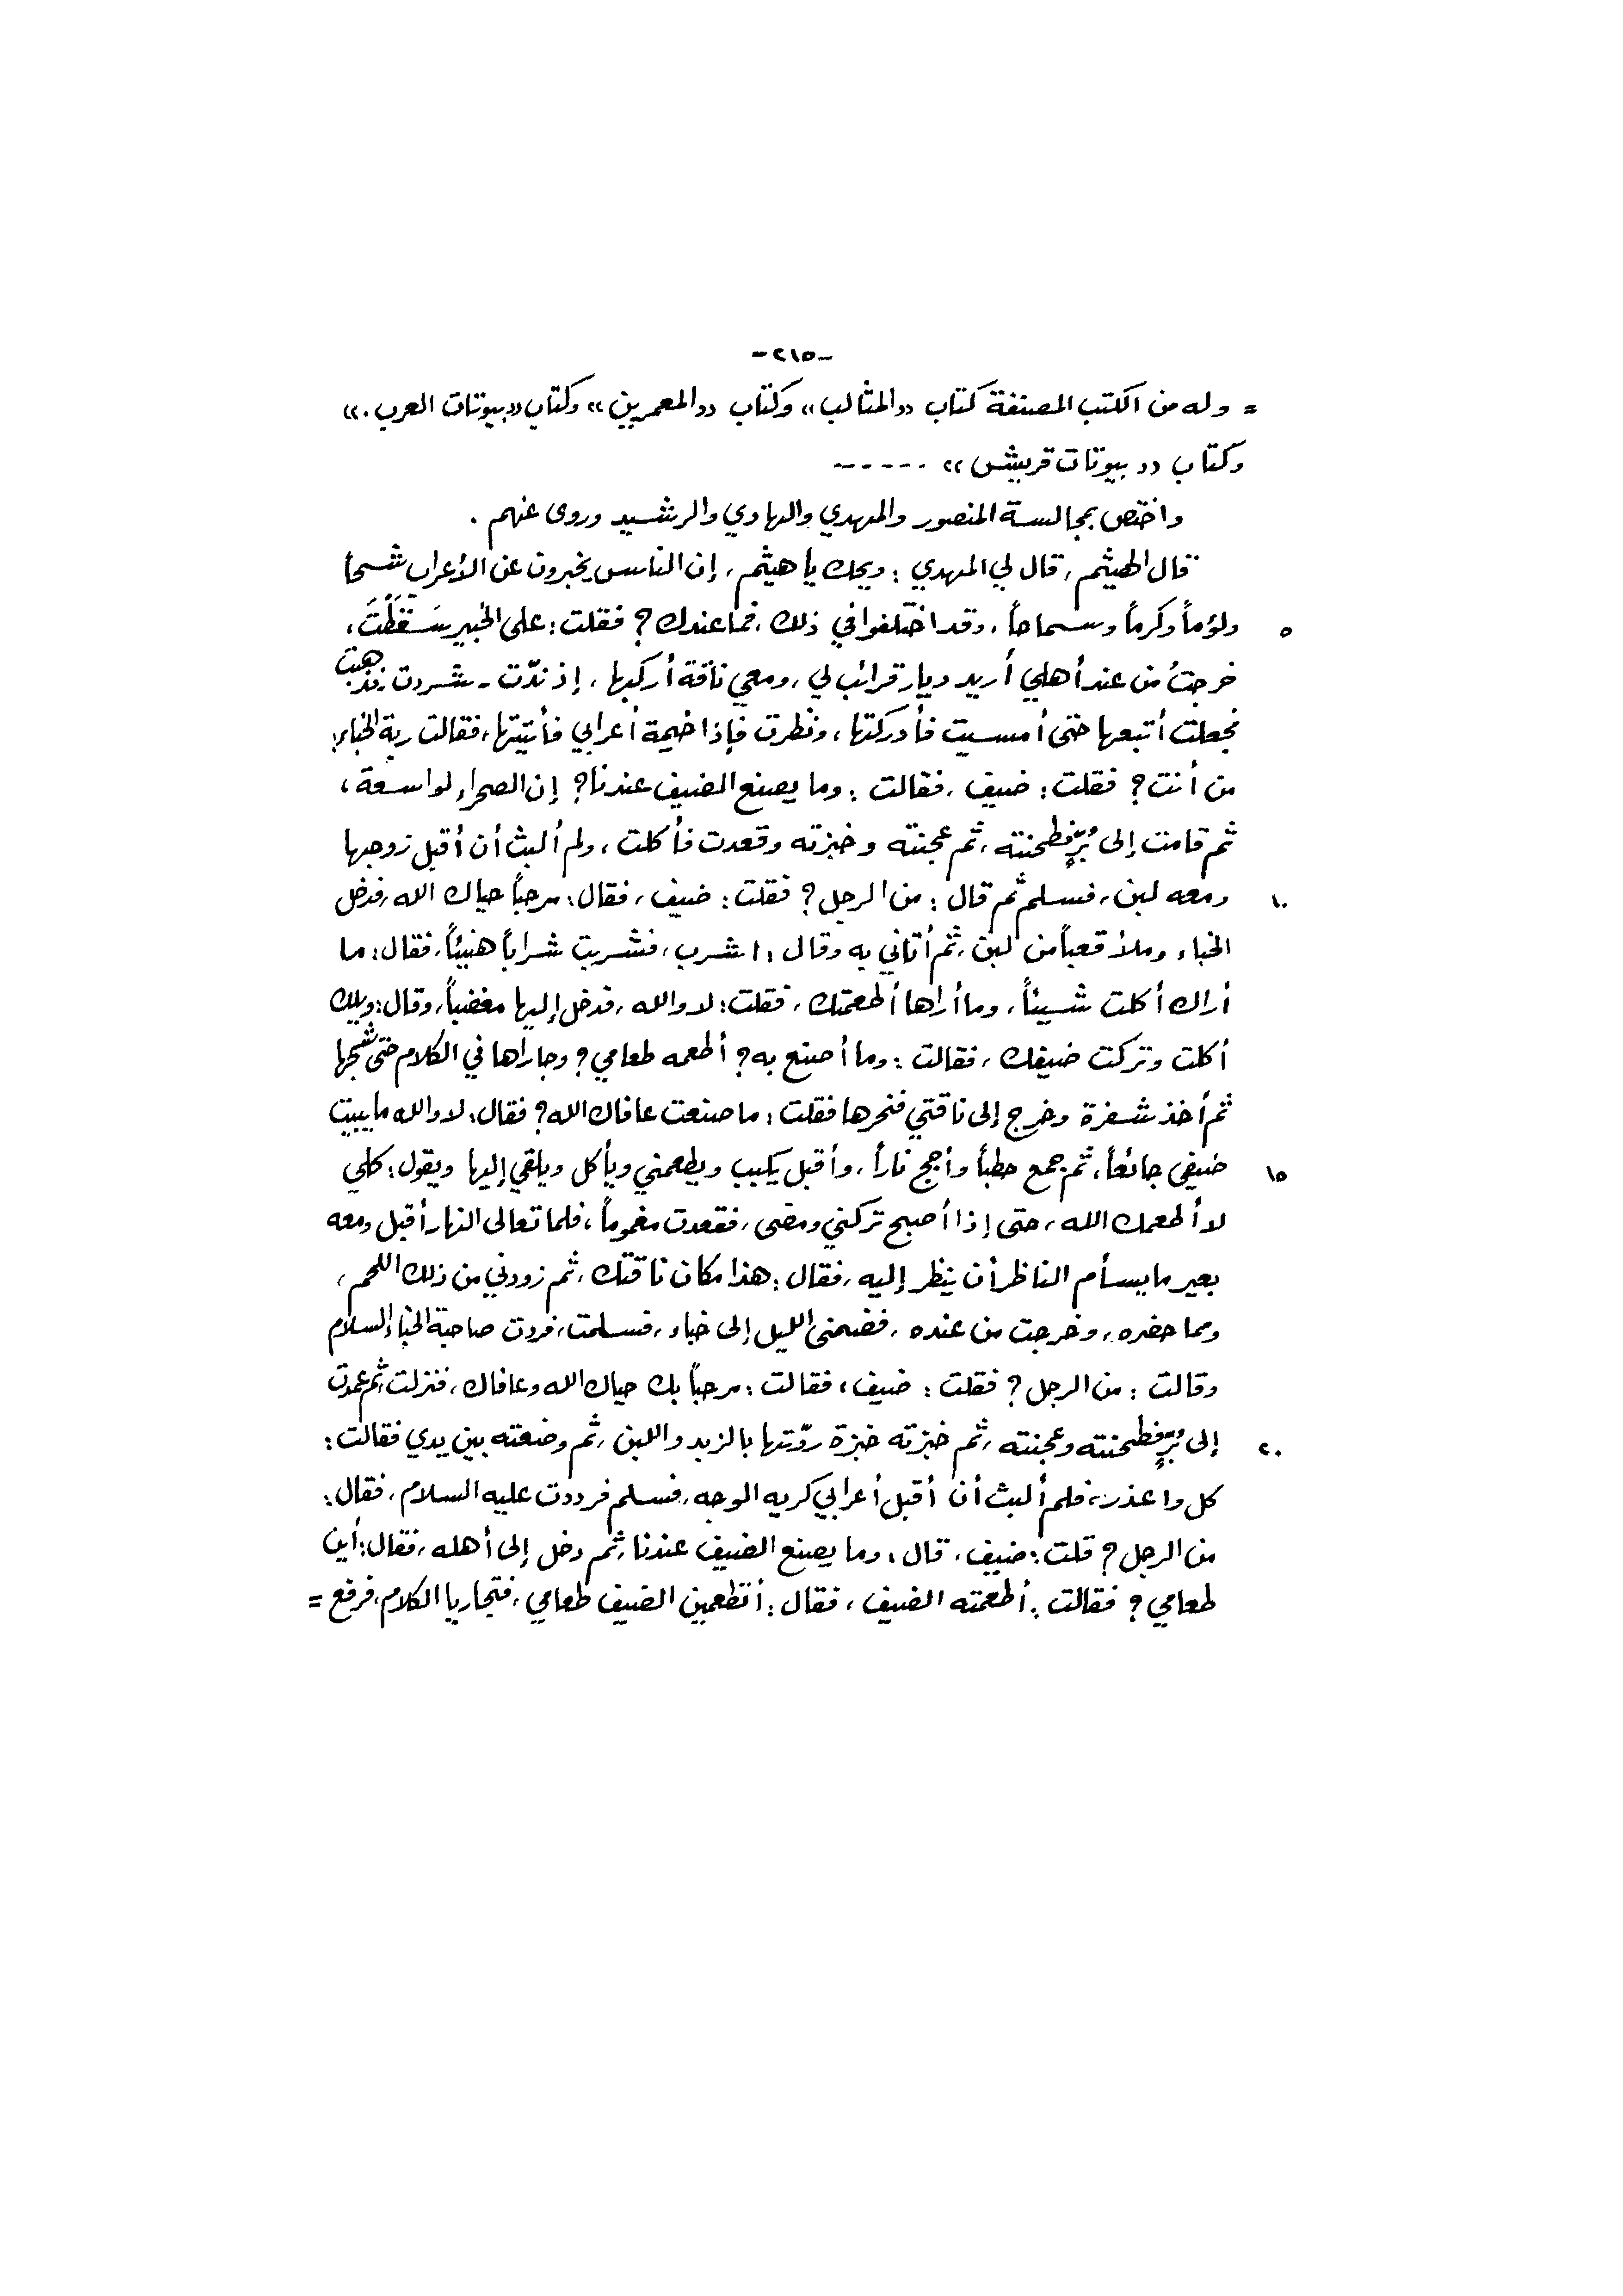 -٢١٥-
= وله من الكتب المصنفة كتاب «المثالب» وكتاب «المعمرين» وكتاب «بيوتات العرب.»
وكتاب «بيوتات قريش» ------
واختص بمجالسة المنصور والمهدي والهادي والرشيد وروى عنهم .
قال الهيثم، قال لي المهدي: ويحك يا هيثم، إن الناس يخبرون عن الأعراب شحاً
٥ ولؤماً وكرماً وسماحاً، وقد اختلفوا في ذلك، فما عندك؟ فقلت: على الخبير سَقَطْتَ،
خرجتُ من عند أهلي أريد ديار قرائب لي، ومعي ناقة أركبها، إذ ندّت - شردت، فذهبت
فجعلت أتبعها حتى أمسيت فأدركتها، ونظرت فإذا خيمة أعرابي فأتيتها، فقالت ربة الخباء:
من أنت؟ فقلت: ضيف، فقالت: وما يصنع الضيف عندنا؟ إن الصحراء لواسعة،
ثم قامت إلى بُرٍّ فطحنته، ثم عجنته وخبزته وقعدت فأكلت، ولم ألبث أن أقبل زوجها
١٠ ومعه لبن، فسلم ثم قال: من الرجل؟ فقلت: ضيف، فقال: مرحباً حياك الله، فدخل
الخباء وملأ قعباً من لبن، ثم أتاني به وقال: اشرب، فشربت شراباً هنيئاً، فقال: ما
أراك أكلت شيئاً، وما أراها أطعمتك، فقلت: لا والله، فدخل إليها مغضباً، وقال: ويلك
أكلت وتركت ضيفك، فقالت: وما أصنع به؟ أطعمه طعامي؟ وجاراها في الكلام حتى شجها
ثم أخذ شفرة وخرج إلى ناقتي فنحرها فقلت: ما صنعت عافاك الله؟ فقال: لا والله ما يبيت
١٥ ضيفي جائعاً، ثم جمع حطباً وأجج ناراً، وأقبل يكبب ويطعمني ويأكل ويلقي إليها ويقول: كلي
لا أطعمك الله، حتى إذا أصبح تركني ومضى، فقعدت مغموماً، فلما تعالى النهار أقبل ومعه
بعير ما يسأم الناظر أن ينظر إليه، فقال: هذا مكان ناقتك، ثم زودني من ذلك اللحم،
ومما حضره، وخرجت من عنده، فضمني الليل إلى خباء، فسلمت، فردت صاحبة الخباء السلام
وقالت: من الرجل؟ فقلت: ضيف، فقالت: مرحباً بك حياك الله وعافاك، فنزلت، ثم عمدت
٢٠ إلى بُرٍّ فطحنته وعجنته، ثم خبزته خبزة روّتها بالزبد واللبن، ثم وضعته بين يدي فقالت:
كل واعذر، فلم ألبث أن أقبل أعرابي كريه الوجه، فسلم فرددت عليه السلام، فقال:
من الرجل؟ قلت: ضيف، قال: وما يصنع الضيف عندنا، ثم دخل إلى أهله، فقال: أين
طعامي؟ فقالت: أطعمته الضيف، فقال: أتطعمين الضيف طعامي، فتجاريا الكلام، فرفع =